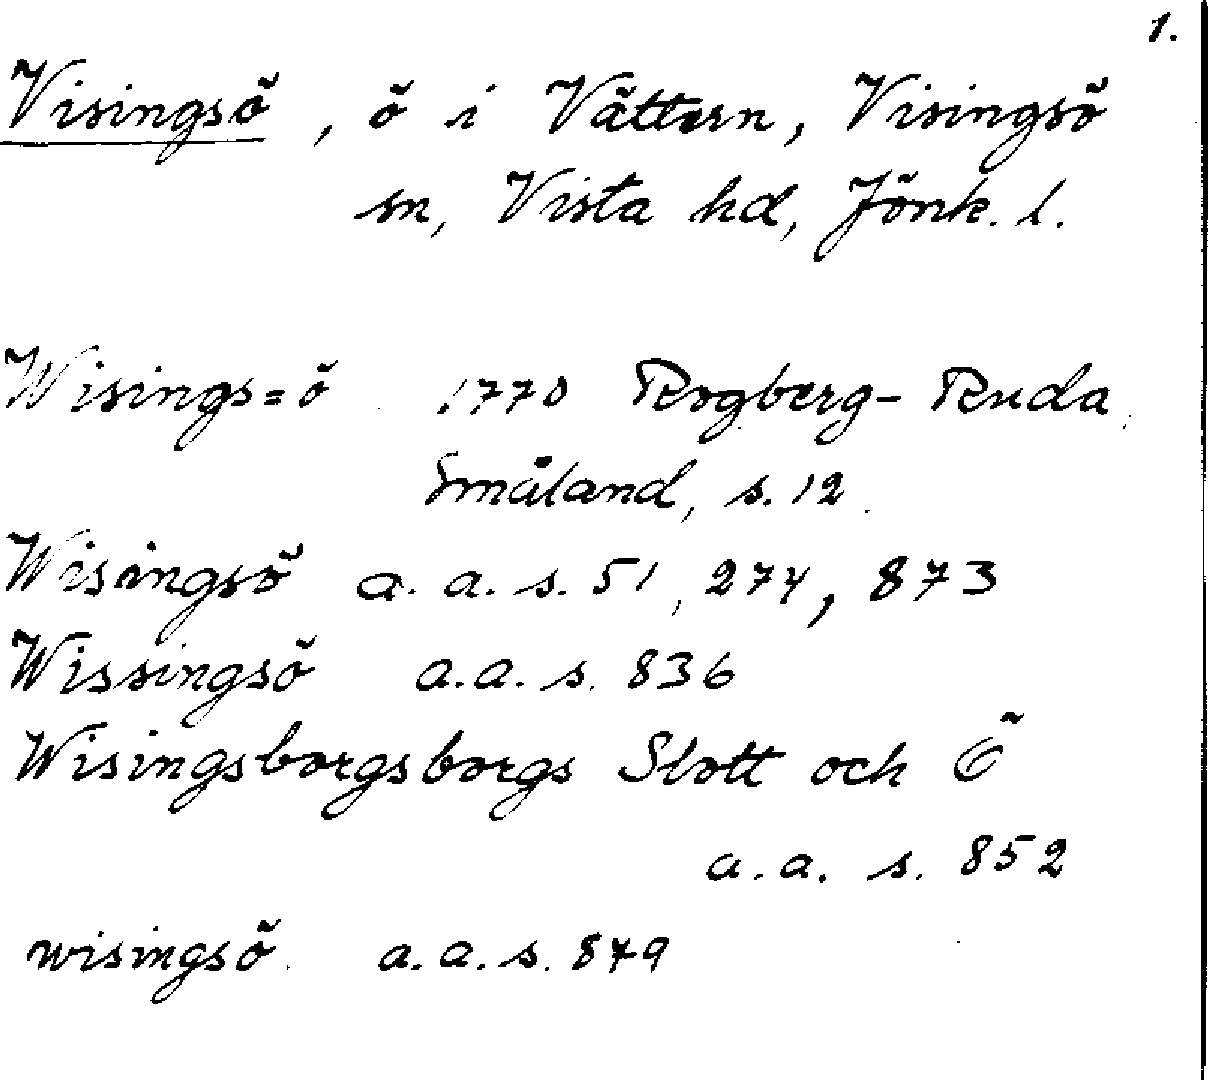 1.
Visingsö, ö i Vättern, Visingsö
sn, Vista hd, Jönk. l.
Wisings=ö 1770 Rogberg-Ruda,
Småland, s. 12.
Wisingsö a. a. s. 51, 274, 873
Wissingsö a. a. s. 836
Wisingsborgsborgs Slott och Ö
a. a. s. 852
wisingsö. a. a. s. 879